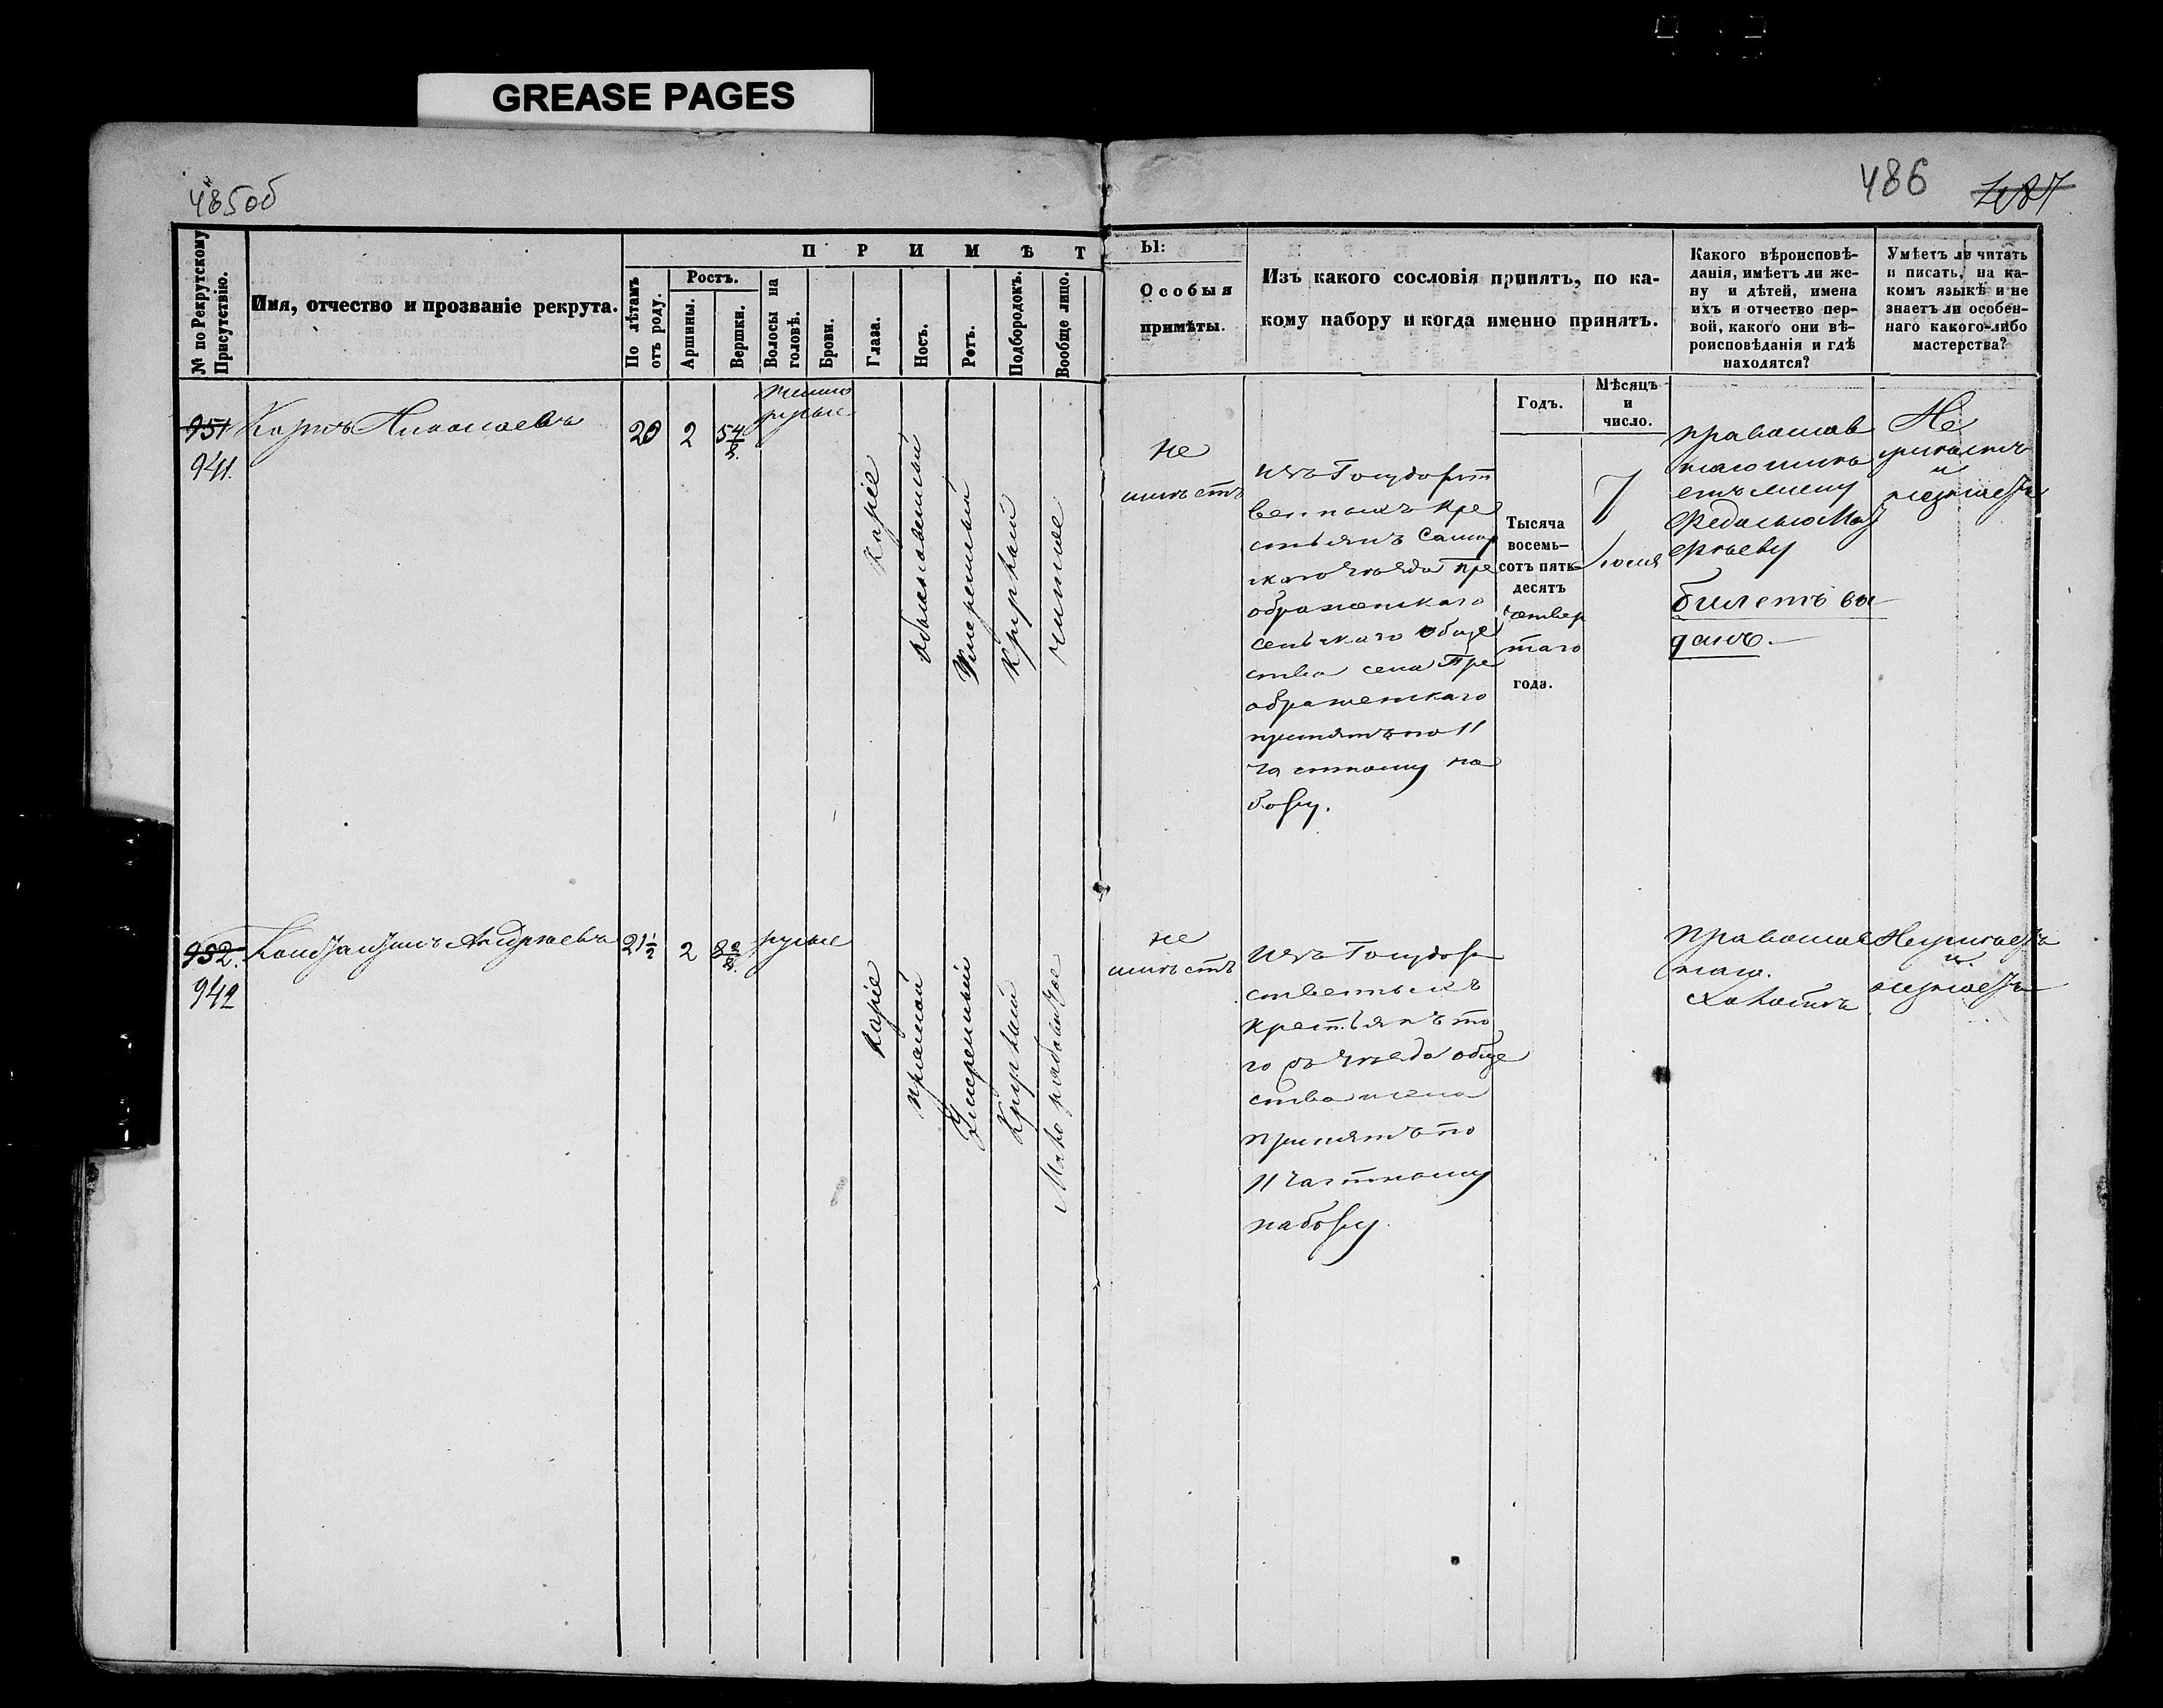 GREASE PAGES
485об
486 487
№ по Рекрутскому Присутствію.
Имя, отчество и прозваніе рекрута.
П Р И М Ѣ Т
По лѣтамъ отъ роду.
Ростъ.
Аршины.
Вершки.
Волосы на головѣ.
Брови.
Глаза.
Носъ.
Ротъ.
Подбородокъ.
Вообще лицо.
Ы:
Особыя
примѣты.
Изъ какого сословія принятъ, по ка-
кому набору и когда именно принятъ.
Какого вѣроисповѣ-
данія, имѣетъ ли же-
ну и дѣтей, имена
ихъ и отчество пер-
вой, какого они вѣ-
роисповѣданія и гдѣ
находятся?
Умѣетъ ли читать
и писать, на ка-
комъ языкѣ и не
знаетъ ли особен-
наго какого-либо
мастерства?
Годъ.
Мѣсяцъ
и
число.
951
941.
Николаевъ
20
2
5 4/8.
темно
русые
Каріе
обыкновенный
Умеренный
Круглый
чистое
не
имѣетъ
изъ Государст
венныхъ кре
стьянъ Самар
скаго уѣзда Пре
ображенскаго
сельскаго обще
ства села Пре
ображенскаго
принятъ по 11
частному на
бору.
Тысяча
восемь-
сотъ пять-
десятъ
четвер
таго
года.
7
Іюля
православ
наго имѣ
етъ жену
билетъ вы
данъ.
Не
умѣетъ
и
незнаетъ
952.
942
Константинъ Андреевъ
21 1/2
2
русые
Каріе
прямой
Умеренный
Круглый
Мало рябоватое
не
имѣетъ
Изъ Государ
ственныхъ
крестьянъ то
го жъ уѣзда обще
ства и села
принятъ по
11 частному
набору.
Православ
наго.
холостъ
Неумѣетъ
и
незнаетъ